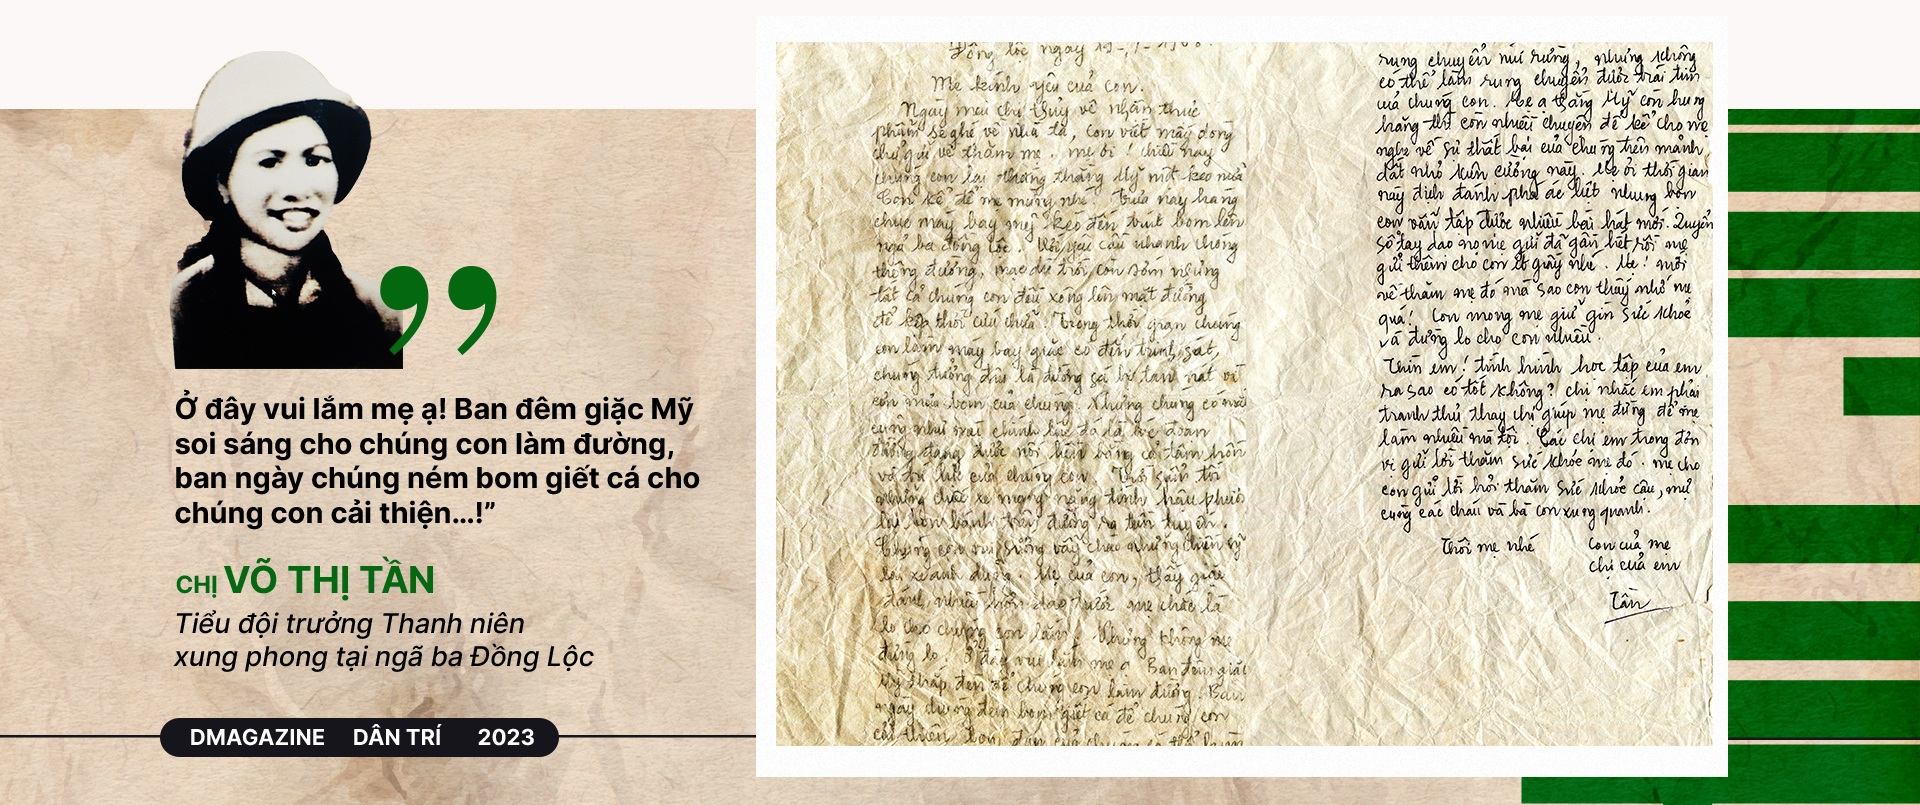 Ở đây vui lắm mẹ ạ! Ban đêm giặc Mỹ
soi sáng cho chúng con làm đường,
ban ngày chúng ném bom giết cá cho
chúng con cải thiện...!”
CHỊ VÕ THỊ TẦN
Tiểu đội trưởng Thanh niên
xung phong tại ngã ba Đồng Lộc
DMAGAZINE DÂN TRÍ 2023
Đồng lộc ngày
Mẹ kính yêu của con.
Ngày mai chị Thủy về nhận thực
phẩm sẽ ghé về nhà ta, con viết mấy dòng
chữ gửi về thăm mẹ. mẹ ơi! chiều nay
chúng con lại thắng thằng Mỹ một keo nữa
Con kể để mẹ mừng nhé. Trưa nay hàng
chục máy bay mỹ kéo đến trút bom lên
ngã ba đồng lộc. Với yêu cầu nhanh chóng
thông đường, mặc dù trời còn sớm nhưng
tất cả chúng con đều xông lên mặt đường
để kịp thời cứu chữa. Trong thời gian chúng
con làm máy bay giặc có đến trinh sát,
chúng tưởng đâu là đường sá bị tan nát vì
cơn mưa bom của chúng. Nhưng chúng có
cũng như
đường đang được nối liền bằng cả tâm hồn
và của chúng con. Thời gian tới
những xe mang nặng tình hậu phương
lại bon bánh trên đường ra tiền tuyến.
Chúng con vui sướng vẫy chào những chiến sỹ
lái xe anh dũng. Mẹ của con, thấy giặc
đánh nhiều mẹ chắc là
lo cho chúng con lắm! Nhưng không mẹ
đừng lo, ở đây vui lắm mẹ ạ Ban đêm giặc
Mỹ thắp đèn để chúng con làm đường. Ban
ngày chúng đem bom giết cá để chúng con
cải thiện
rung chuyển núi rừng, nhưng không
có thể làm rung chuyển được trái tim
của chúng con. Mẹ ạ thằng Mỹ còn hung
hăng thì còn nhiều chuyện để kể cho mẹ
nghe về sự thất bại của chúng trên mảnh
đất nhỏ kiên cường này. Mẹ ơi thời gian
này địch đánh phá ác liệt nhưng bọn
con vẫn tập được nhiều bài hát mới. Quyển
sổ tay dạo nọ mẹ gửi đã gần hết rồi mẹ
gửi thêm cho con ít giấy nhé. Mẹ! mới
về thăm mẹ đó mà sao con thấy nhớ mẹ
quá! Con mong mẹ giữ gìn sức khỏe
và đừng lo cho con nhiều.
Thìn em! tình hình học tập của em
ra sao có tốt không? chị nhắc em phải
tranh thủ thay chị giúp mẹ đừng để mẹ
làm nhiều mà tội. Các chị em trong đơn
vị gửi lời thăm sức khỏe mẹ đó. mẹ cho
con gửi lời hỏi thăm sức khỏe cậu, mự
cùng các cháu và bà con xung quanh.
Thôi mẹ nhé
Con của mẹ
chị của em
Tần